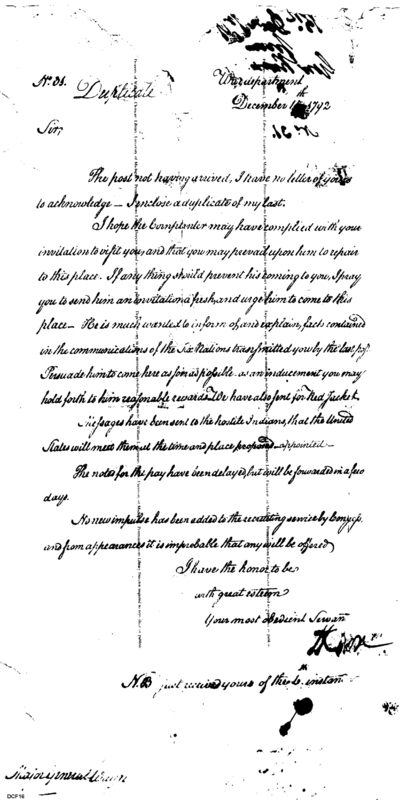 No. 31.
Duplicate
War department
December 1792
Sir,
The post not having arrived, I have no letter of yours
to acknowledge — I enclose a duplicate of my last.
I hope the Cornplanter may have complied with your
invitation to visit you, and that you may prevail upon him to repair
to this place. If any thing should prevent his coming to you, I pray
you to send him an invitation afresh, and urge him to come to this
place — He is much wanted to inform of, and explain, facts contained
in the communications of the Six Nations transmitted you by the last post.
Persuade him to come here as soon as possible. as an inducement you may
hold forth to him reasonable rewards. We have also sent for Red Jacket.
Messages have been sent to the hostile Indians, that the United
States will meet them at the time and place proposed appointed —
The notes for the pay have been delayed, but will be forwarded in a few
days.
No new impulse has been added to the recruiting service by Congress,
and from appearances it is improbable that any will be offered
I have the honor to be
with great esteem
Your most obedient Servant
HKnox
N.B just received yours of the instant
Major General Wayne
DCF16